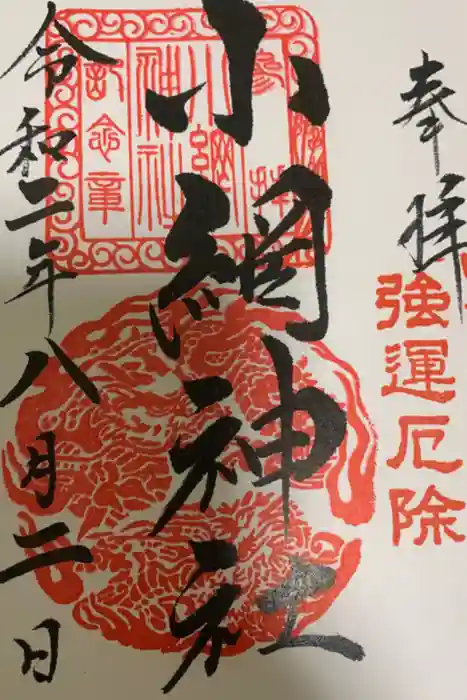 奉拝
強運厄除
小網神社
参拝
小網
神社
記念章
令和二年八月二日